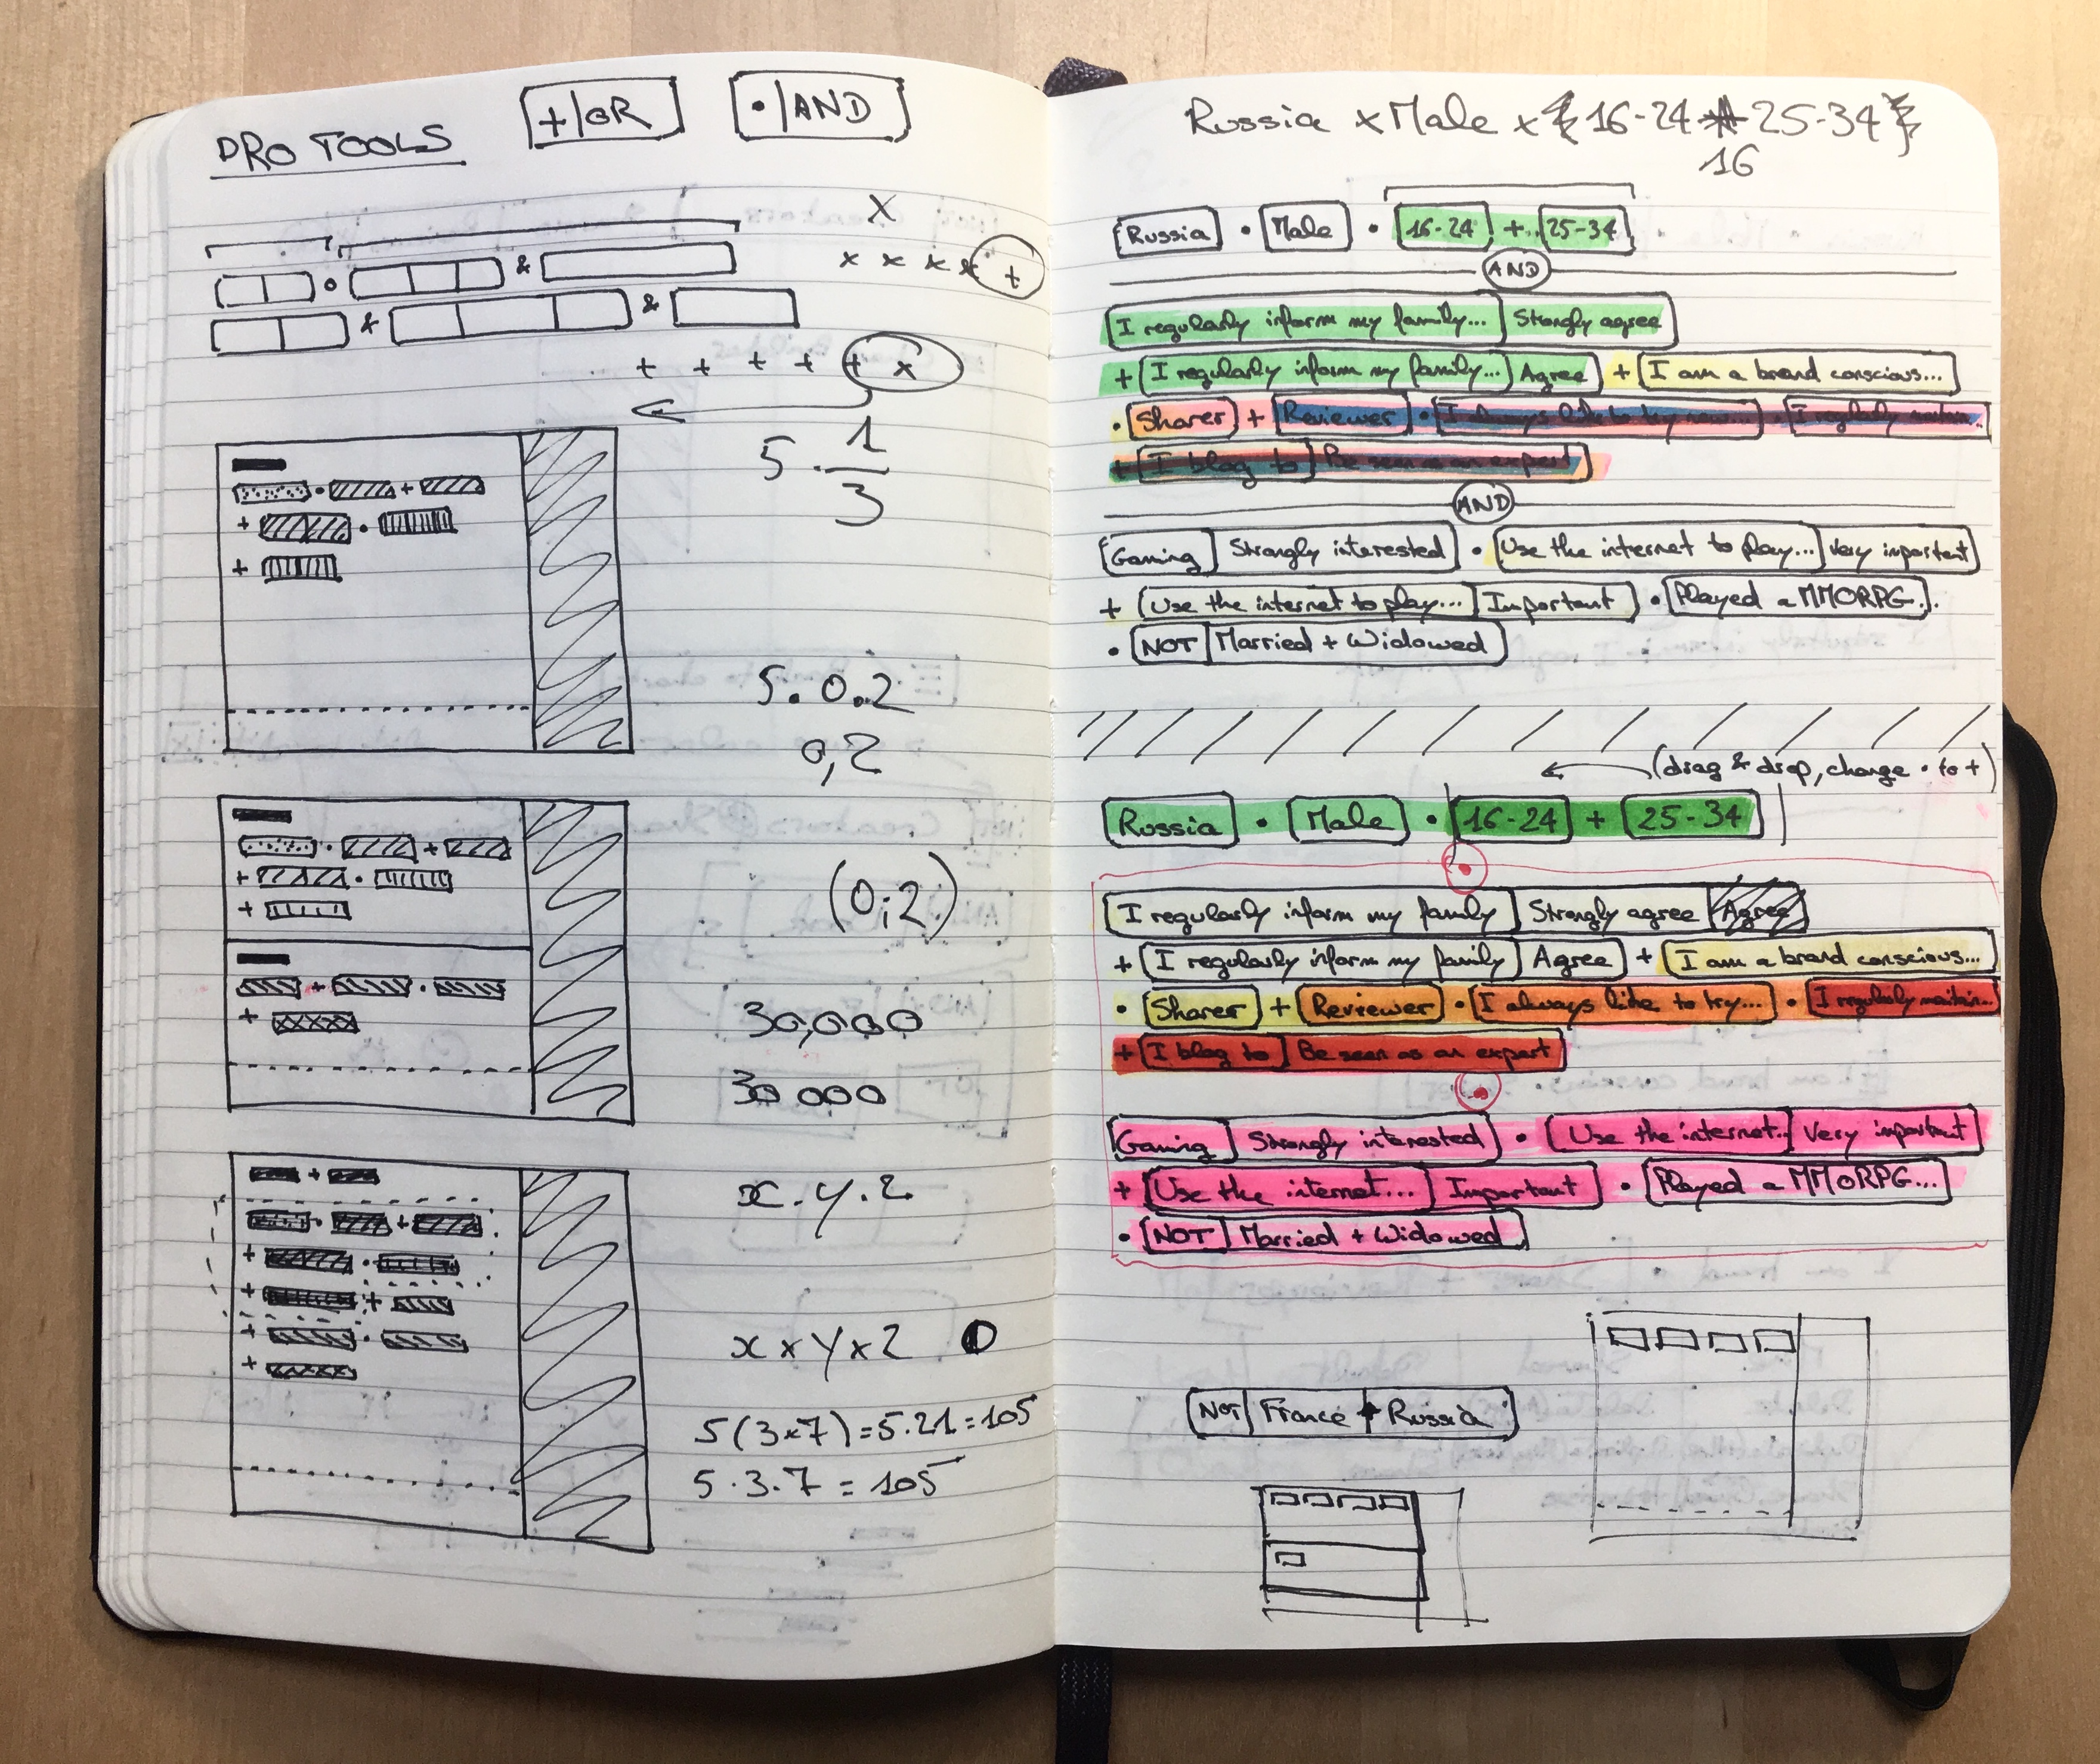 PRO TOOLS
+ | OR
• | AND
x
• &
x x x x +
& &
+ + + + + x
5 · 1/3
• +
+ •
+
5.0.2
0,2
• +
+ •
+
(0;2)
+ •
+
30,000
30 000
+
x.y.2
• +
+ •
+ +
+ •
+
x x y x 2
5(3×7)=5.21=105
5·3·7 = 105
Russia x Male x { 16-24 25-34 }
16
Russia • Male • 16-24 + 25-34
AND
I regularly inform my family... Strongly agree
+ I regularly inform my family... Agree + I am a brand conscious...
• Sharer + Reviewer • I always like to try new... • I regularly maintain...
+ I blog to Be seen as an expert
AND
Gaming Strongly interested • Use the internet to play... Very important
+ Use the internet to play... Important • Played a MMORPG...
• NOT Married + Widowed
(drag & drop, change • to +)
Russia • Male • 16-24 + 25-34
•
I regularly inform my family Strongly agree Agree
+ I regularly inform my family Agree + I am a brand conscious...
• Sharer + Reviewer • I always like to try... • I regularly maintain...
+ I blog to Be seen as an expert
•
Gaming Strongly interested • Use the internet.. Very important
+ Use the internet... Important • Played a MMORPG...
• NOT Married + Widowed
NOT France + Russia